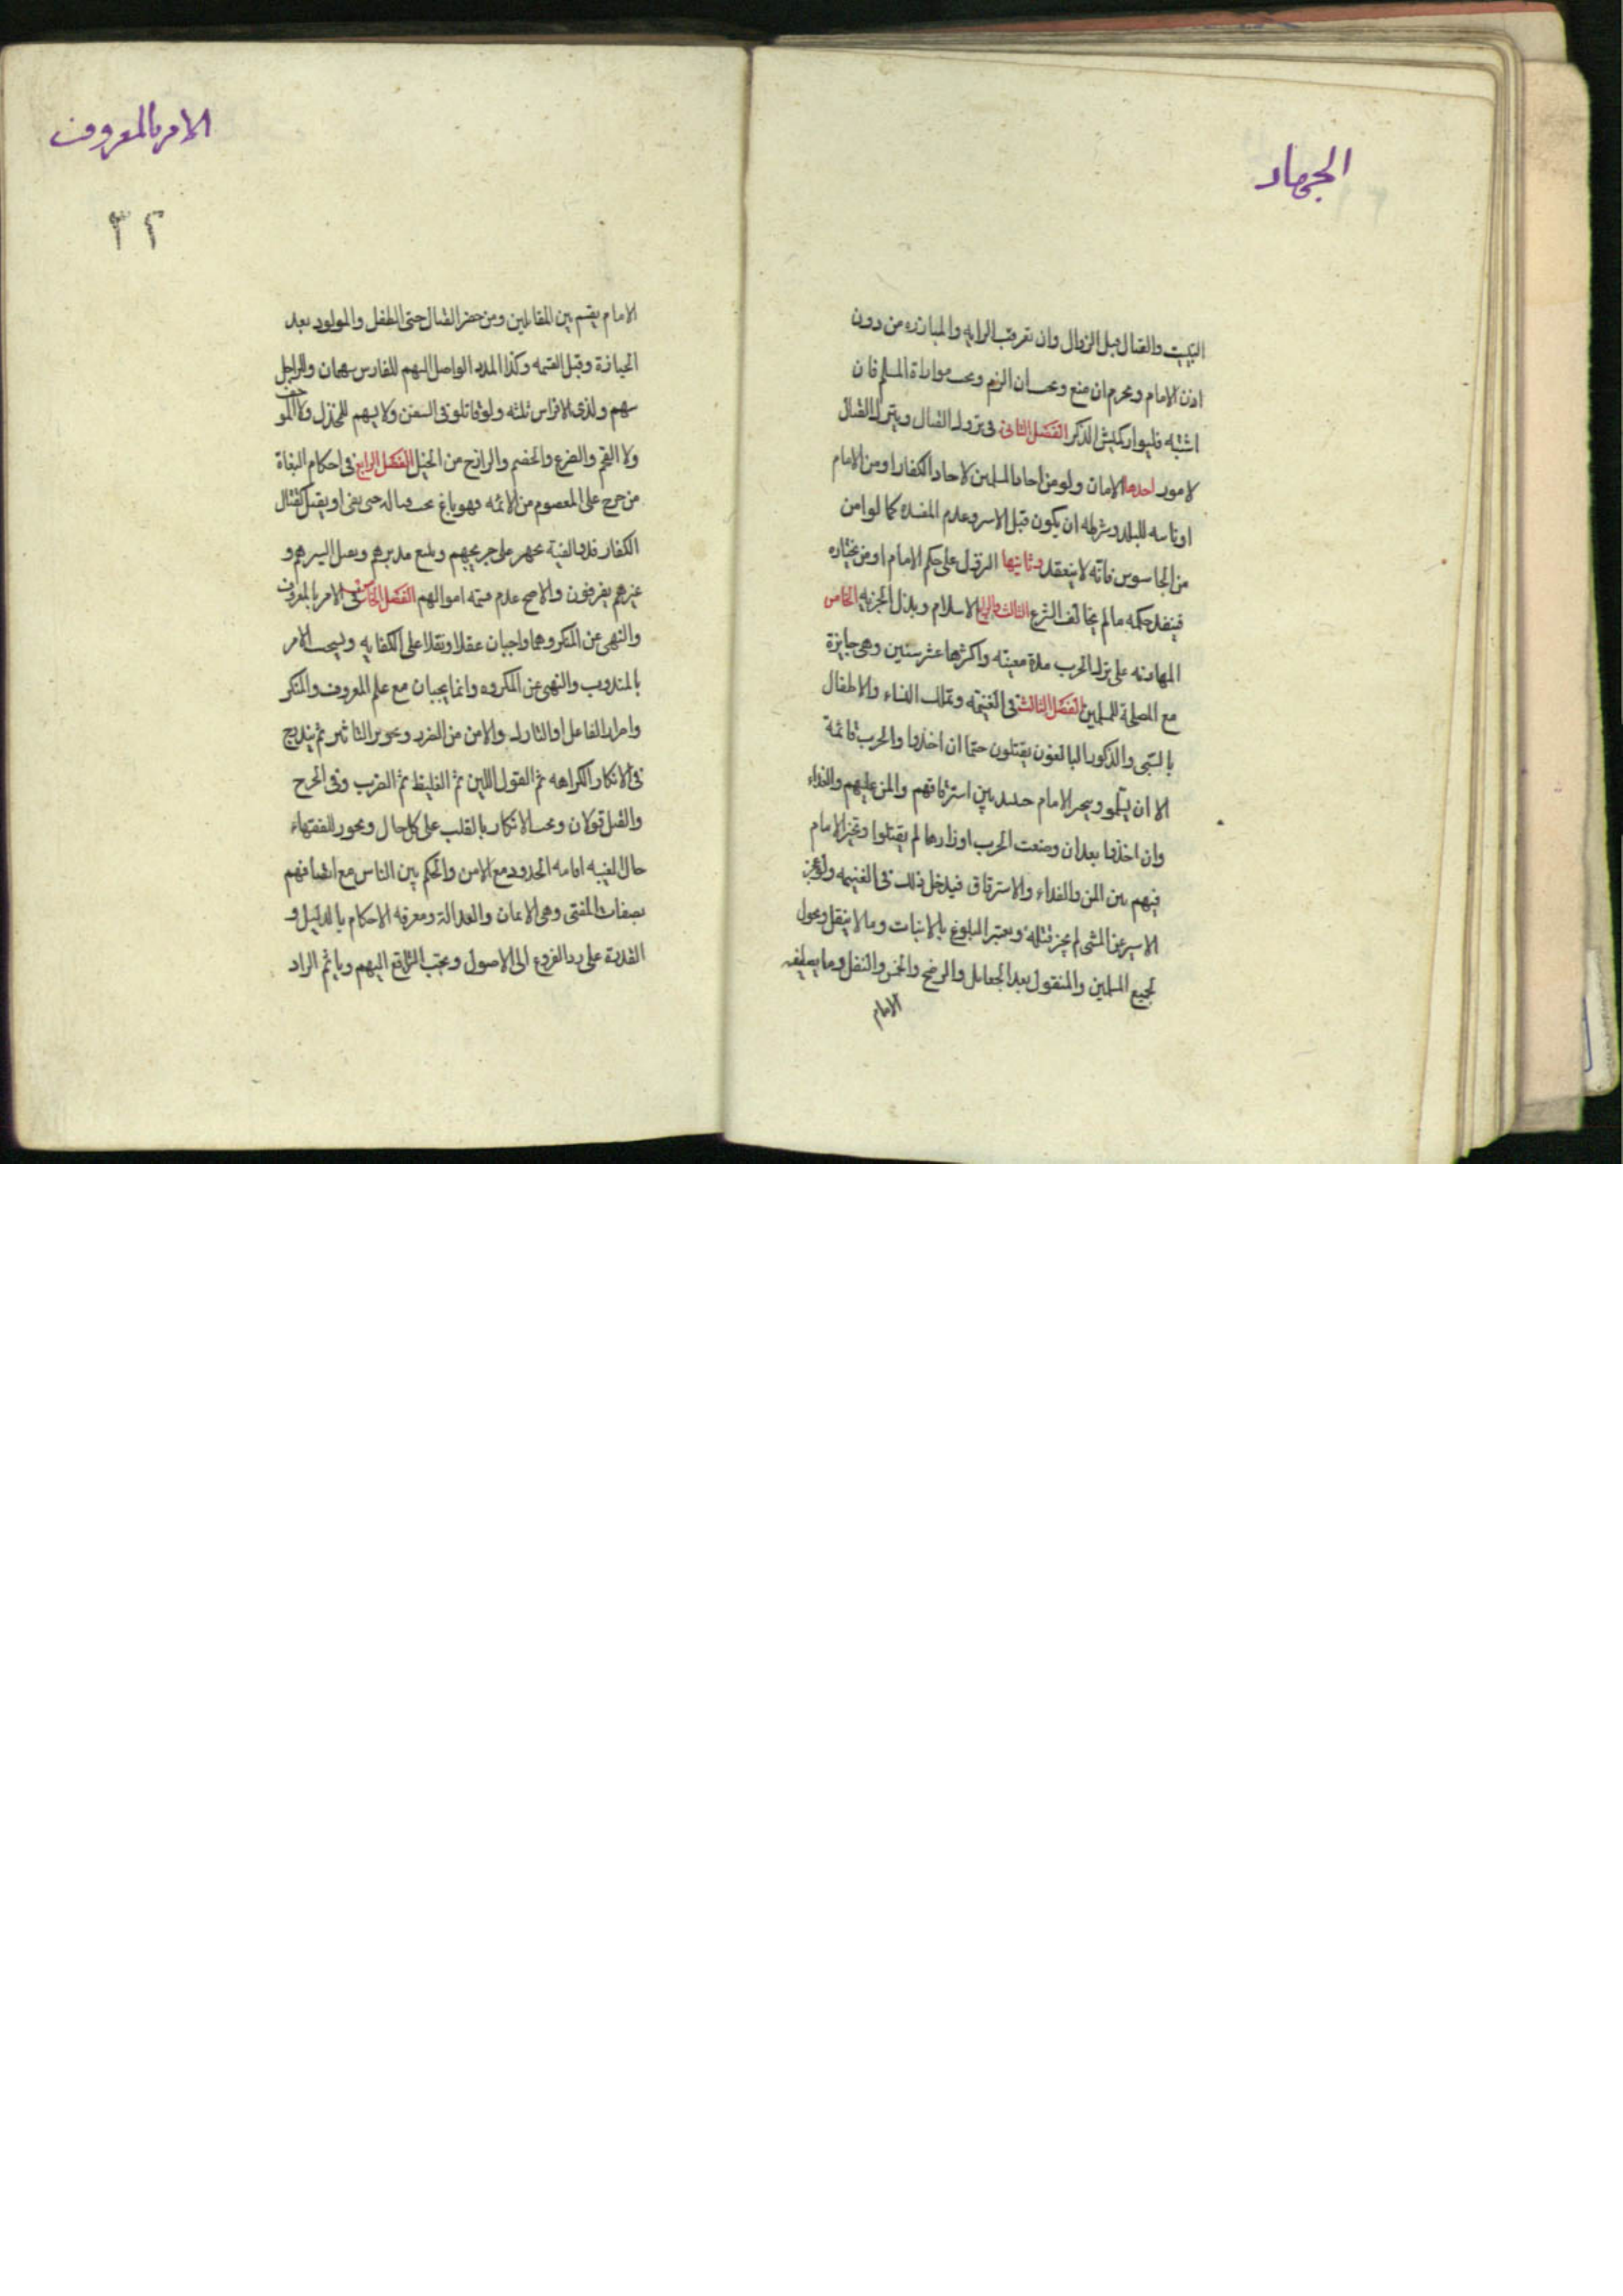 الجهاد
التبييت والقتال قبل الزوال وان تعرقب الدابه والمبارزه من دون
اذن الامام ويحرم ان منع ويجب ان الزم ويجب مواراة المسلم فان
اشتبه فليوار كميش الذكر الفصل الثاني في ترك القتال ويترك القتال
لامور احدها الامان ولو من احاد المسلمين لاحاد الكفار او من الامام
او نائبه للبلد وشرطه ان يكون قبل الاسر وعدم المفسده كما لو امن
من الجاسوس فانه لا ينعقد وثانيها النزول على حكم الامام او من يختاره
فينفذ حكمه ما لم يخالف الشرع الثالث والرابع الاسلام وبذل الجزيه الخامس
المهادنه على ترك الحرب مدة معينه واكثرها عشر سنين وهي جايزة
مع المصلحة للمسلمين الفصل الثالث في الغنيمه وتملك النساء والاطفال
بالسبي والذكور البالغون يقتلون حتما ان اخذوا والحرب قائمة
الا ان يسلموا ويتخير الامام حينئذ بين استرقاقهم والمن عليهم والفداء
وان اخذوا بعد ان وضعت الحرب اوزارها لم يقتلوا وتخير الامام
فيهم بين المن والفداء والاسترقاق فيدخل ذلك في الغنيمه ولو عجز
الاسير عن المشي لم يجز قتله ويعتبر البلوغ بالانبات وما لا ينقل ويحول
لجميع المسلمين والمنقول بعد الجعايل والرضخ والخمس والنفل وما يصطفيه
الامام
الامر بالمعروف
٣٢
الامام يقسم بين المقاتلين ومن حضر القتال حتى الطفل والمولود بعد
الحيازة وقبل القسمه وكذا المدد الواصل اليهم للفارس سهمان وللراجل
سهم ولذي الافراس ثلثه ولو قاتلو في السفن ولا يسهم للمخذل ولا المرجف
ولا القحم والضرع والحضم والرازح من الخيل الفصل الرابع في احكام البغاة
من خرج على المعصوم من الائمه فهو باغ يجب قتاله حتى يفئ او يقتل كقتال
الكفار فذو الفئة يجهز على جريحهم ويتبع مدبرهم ويقتل اسيرهم و
غيرهم يفرقون والاصح عدم قسمه اموالهم الفصل الخامس في الامر بالمعروف
والنهي عن المنكر وهما واجبان عقلا ونقلا على الكفايه ويستحب الامر
بالمندوب والنهي عن المكروه وانما يجبان مع علم المعروف والمنكر
واصرار الفاعل او التارك والامن من الضرر وتجويز التاثير ثم يتدرج
في الانكار الكراهه ثم القول اللين ثم الغليظ ثم الضرب وفي الجرح
والقتل قولان ويجب الانكار بالقلب على كل حال ويجوز للفقهاء
حال الغيبه اقامه الحدود مع الامن والحكم بين الناس مع اتصافهم
بصفات المفتي وهي الايمان والعدالة ومعرفه الاحكام بالدليل و
القدرة على رد الفروع الى الاصول ويجب الترافع اليهم وياثم الراد